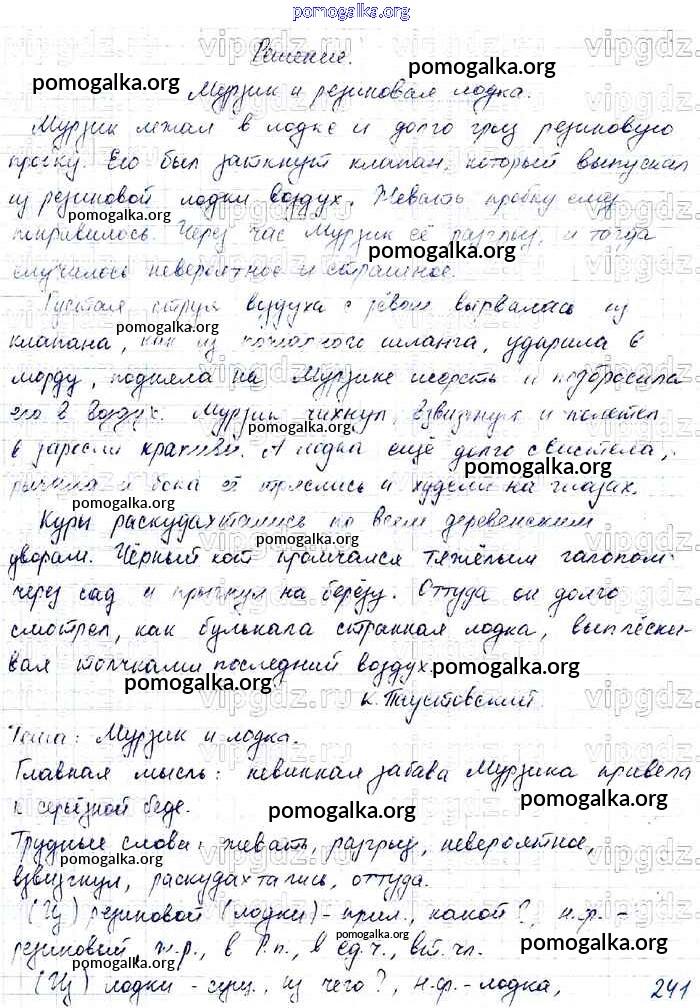 pomogalka.org
Решение.
Мурзик и резиновая лодка.
Мурзик лежал в лодке и долго грыз резиновую
пробку. Ею был заткнут клапан, который выпускал
из резиновой лодки воздух. Жевать пробку ему
понравилось. Через час Мурзик её разгрыз, и тогда
случилось невероятное и страшное.
Густая струя воздуха с рёвом вырвалась из
клапана, как из пожарного шланга, ударила в
морду, подняла на Мурзике шерсть и подбросила
его в воздух. Мурзик чихнул, взвизгнул и полетел
в заросли крапивы. А лодка ещё долго свистела,
рычала и бока её тряслись и худели на глазах.
Куры раскудахтались по всем деревенским
дворам. Чёрный кот промчался тяжёлым галопом
через сад и прыгнул на берёзу. Оттуда он долго
смотрел, как булькала странная лодка, выплёски-
вая толчками последний воздух.
К. Паустовский.
Тема: Мурзик и лодка.
Главная мысль: невинная забава Мурзика привела
к серьёзной беде.
Трудные слова: жевать, разгрыз, невероятное,
взвизгнул, раскудахтались, оттуда.
(Из) резиновой (лодки) - прил., какой?, н.ф. -
резиновый, ж.р., в Р.п., в ед.ч., вт. чл.
(Из) лодки - сущ., из чего?, н.ф. - лодка,
241